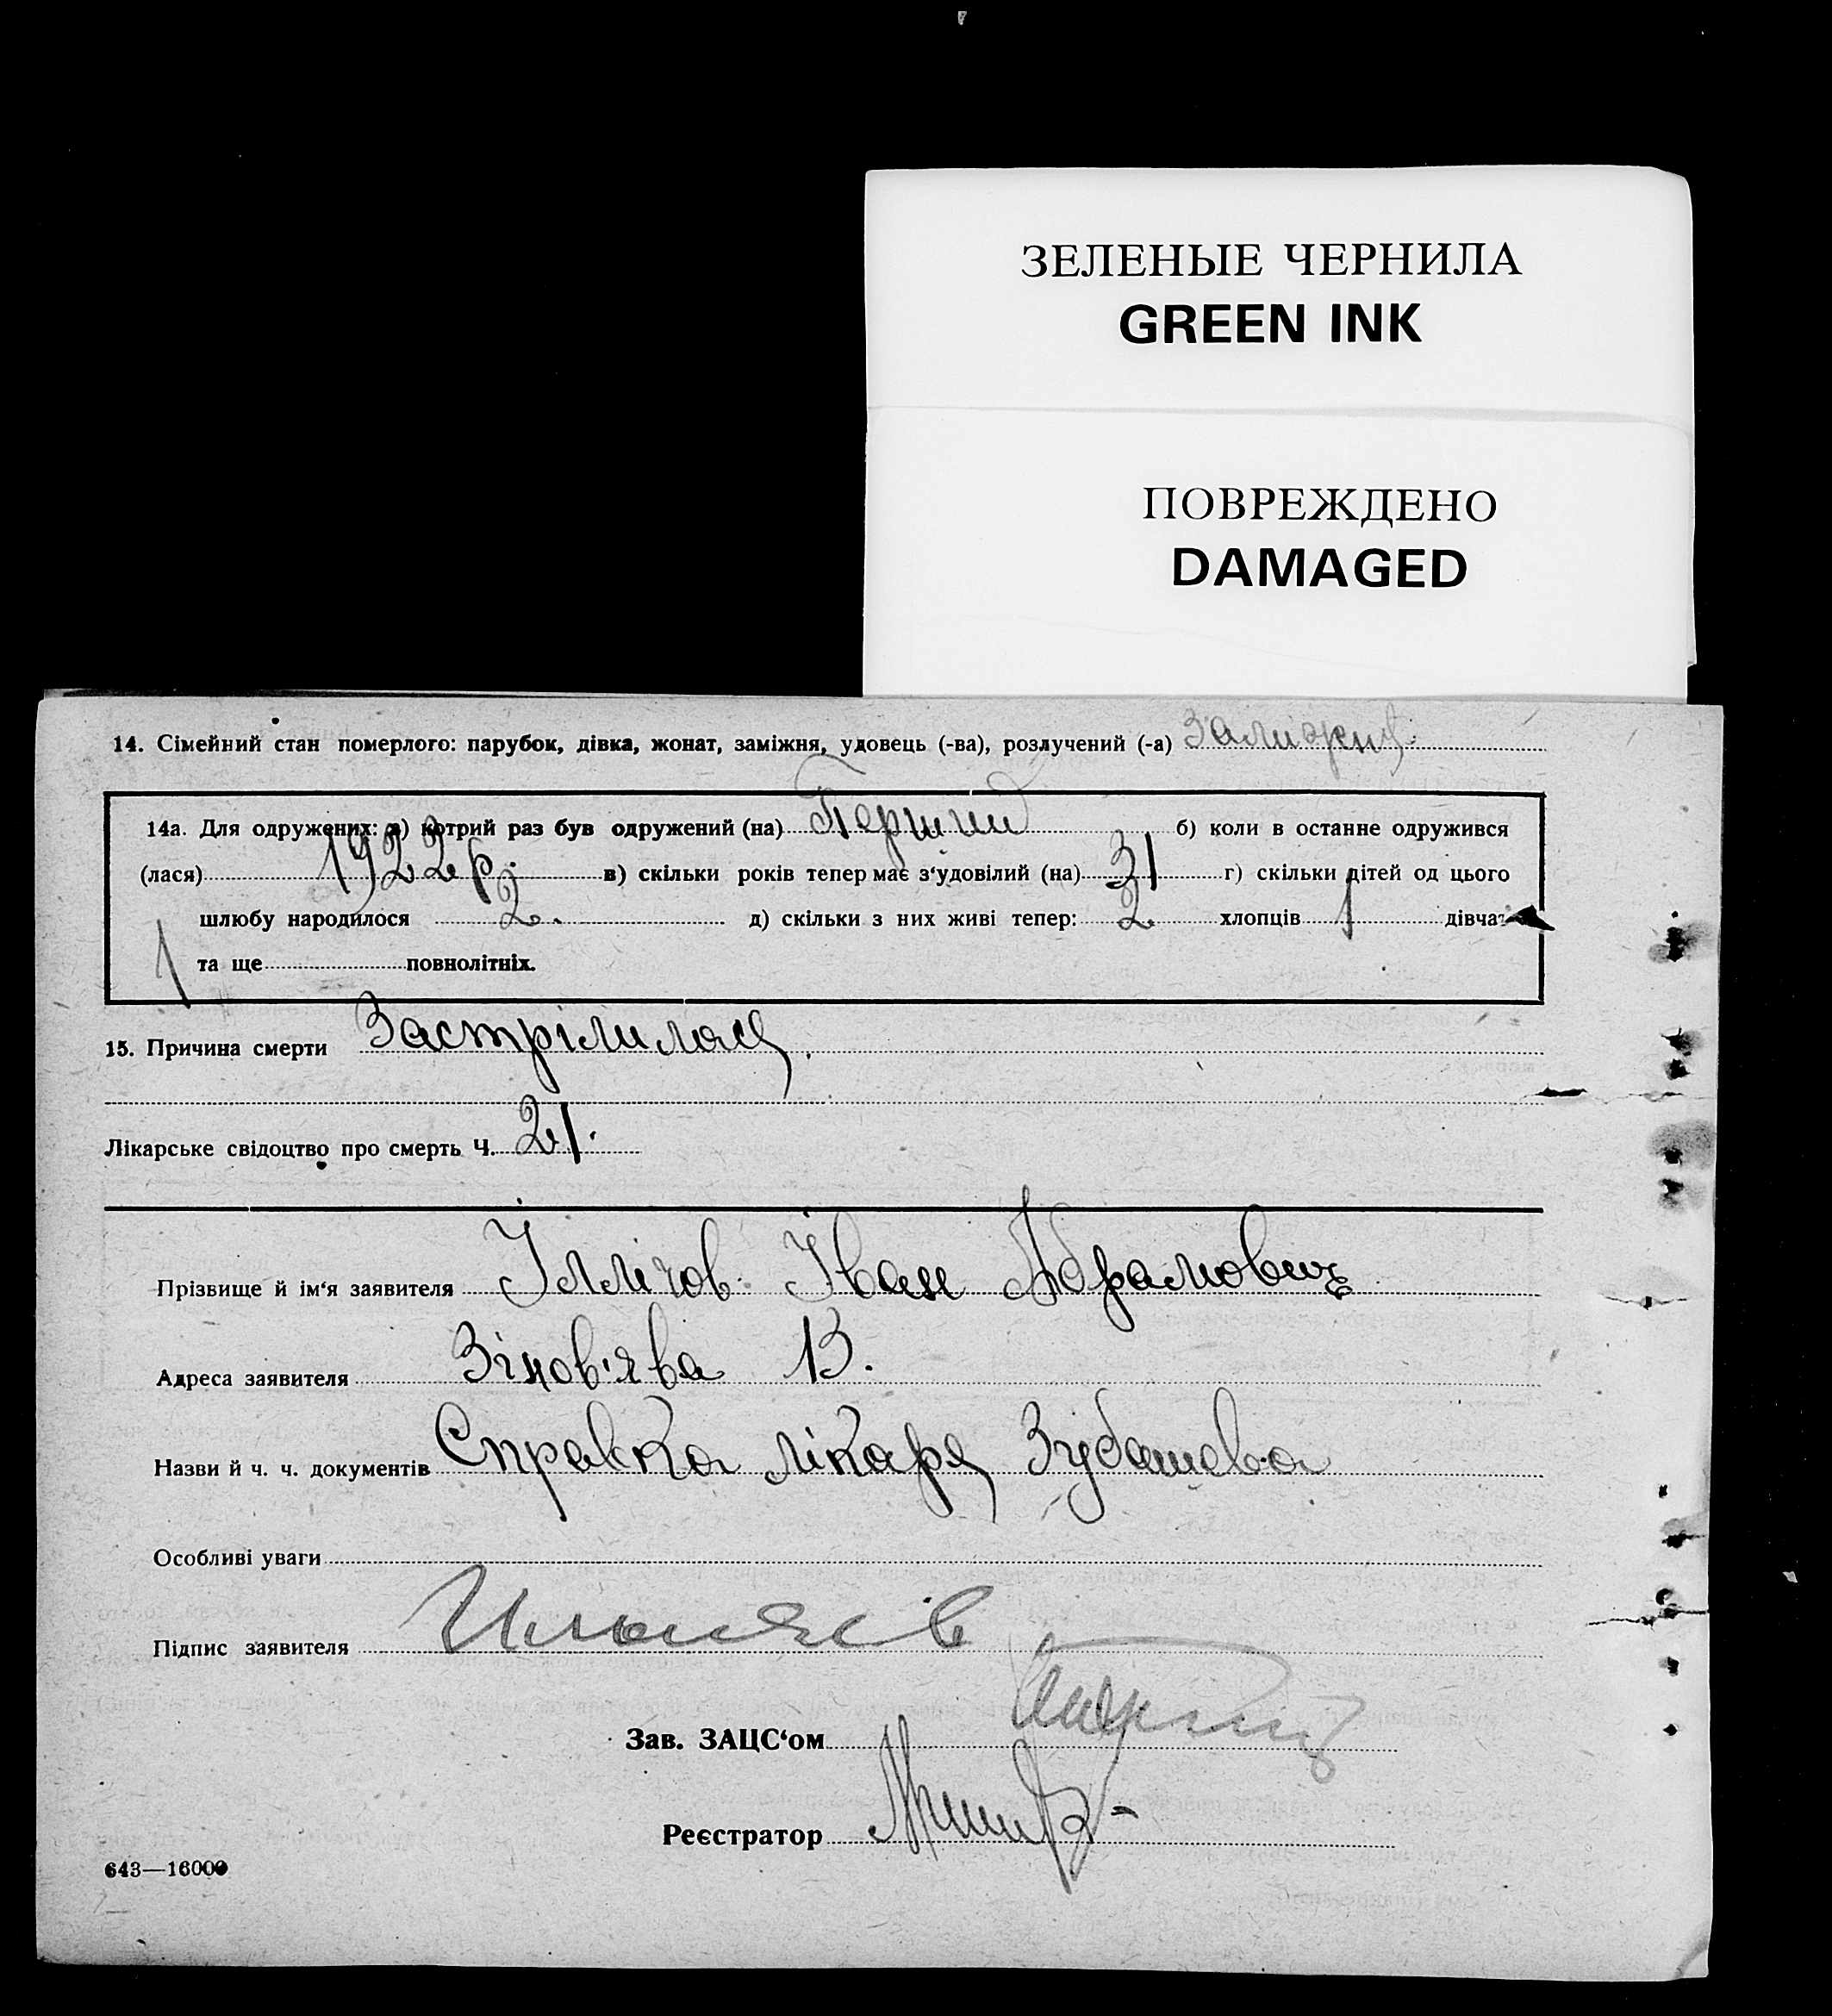 ЗЕЛЕНЫЕ ЧЕРНИЛА
GREEN INK
ПОВРЕЖДЕНО
DAMAGED
14. Сімейний стан померлого: парубок, дівка, жонат, заміжня, удовець (-ва), розлучений (-а) Заміжня
14а. Для одружених: а) котрий раз був одружений (на) Перший б) коли в останне одружився
(лася) 1922 р. в) скільки років тепер має з'удовілий (на) 31 г) скільки дітей од цього
шлюбу народилося 2. д) скільки з них живі тепер: 2 хлопців 1 дівчат
1 та ще повнолітніх.
15. Причина смерти Застрілилася
Лікарське свідоцтво про смерть Ч. 21.
Прізвище й ім'я заявителя Іллічов Іван Абрамович
Адреса заявителя Зінов'єва 13.
Назви й ч. ч. документів Справка лікаря Зубашева
Особливі уваги
Підпис заявителя
Зав. ЗАЦС'ом
Реєстратор
643—16000